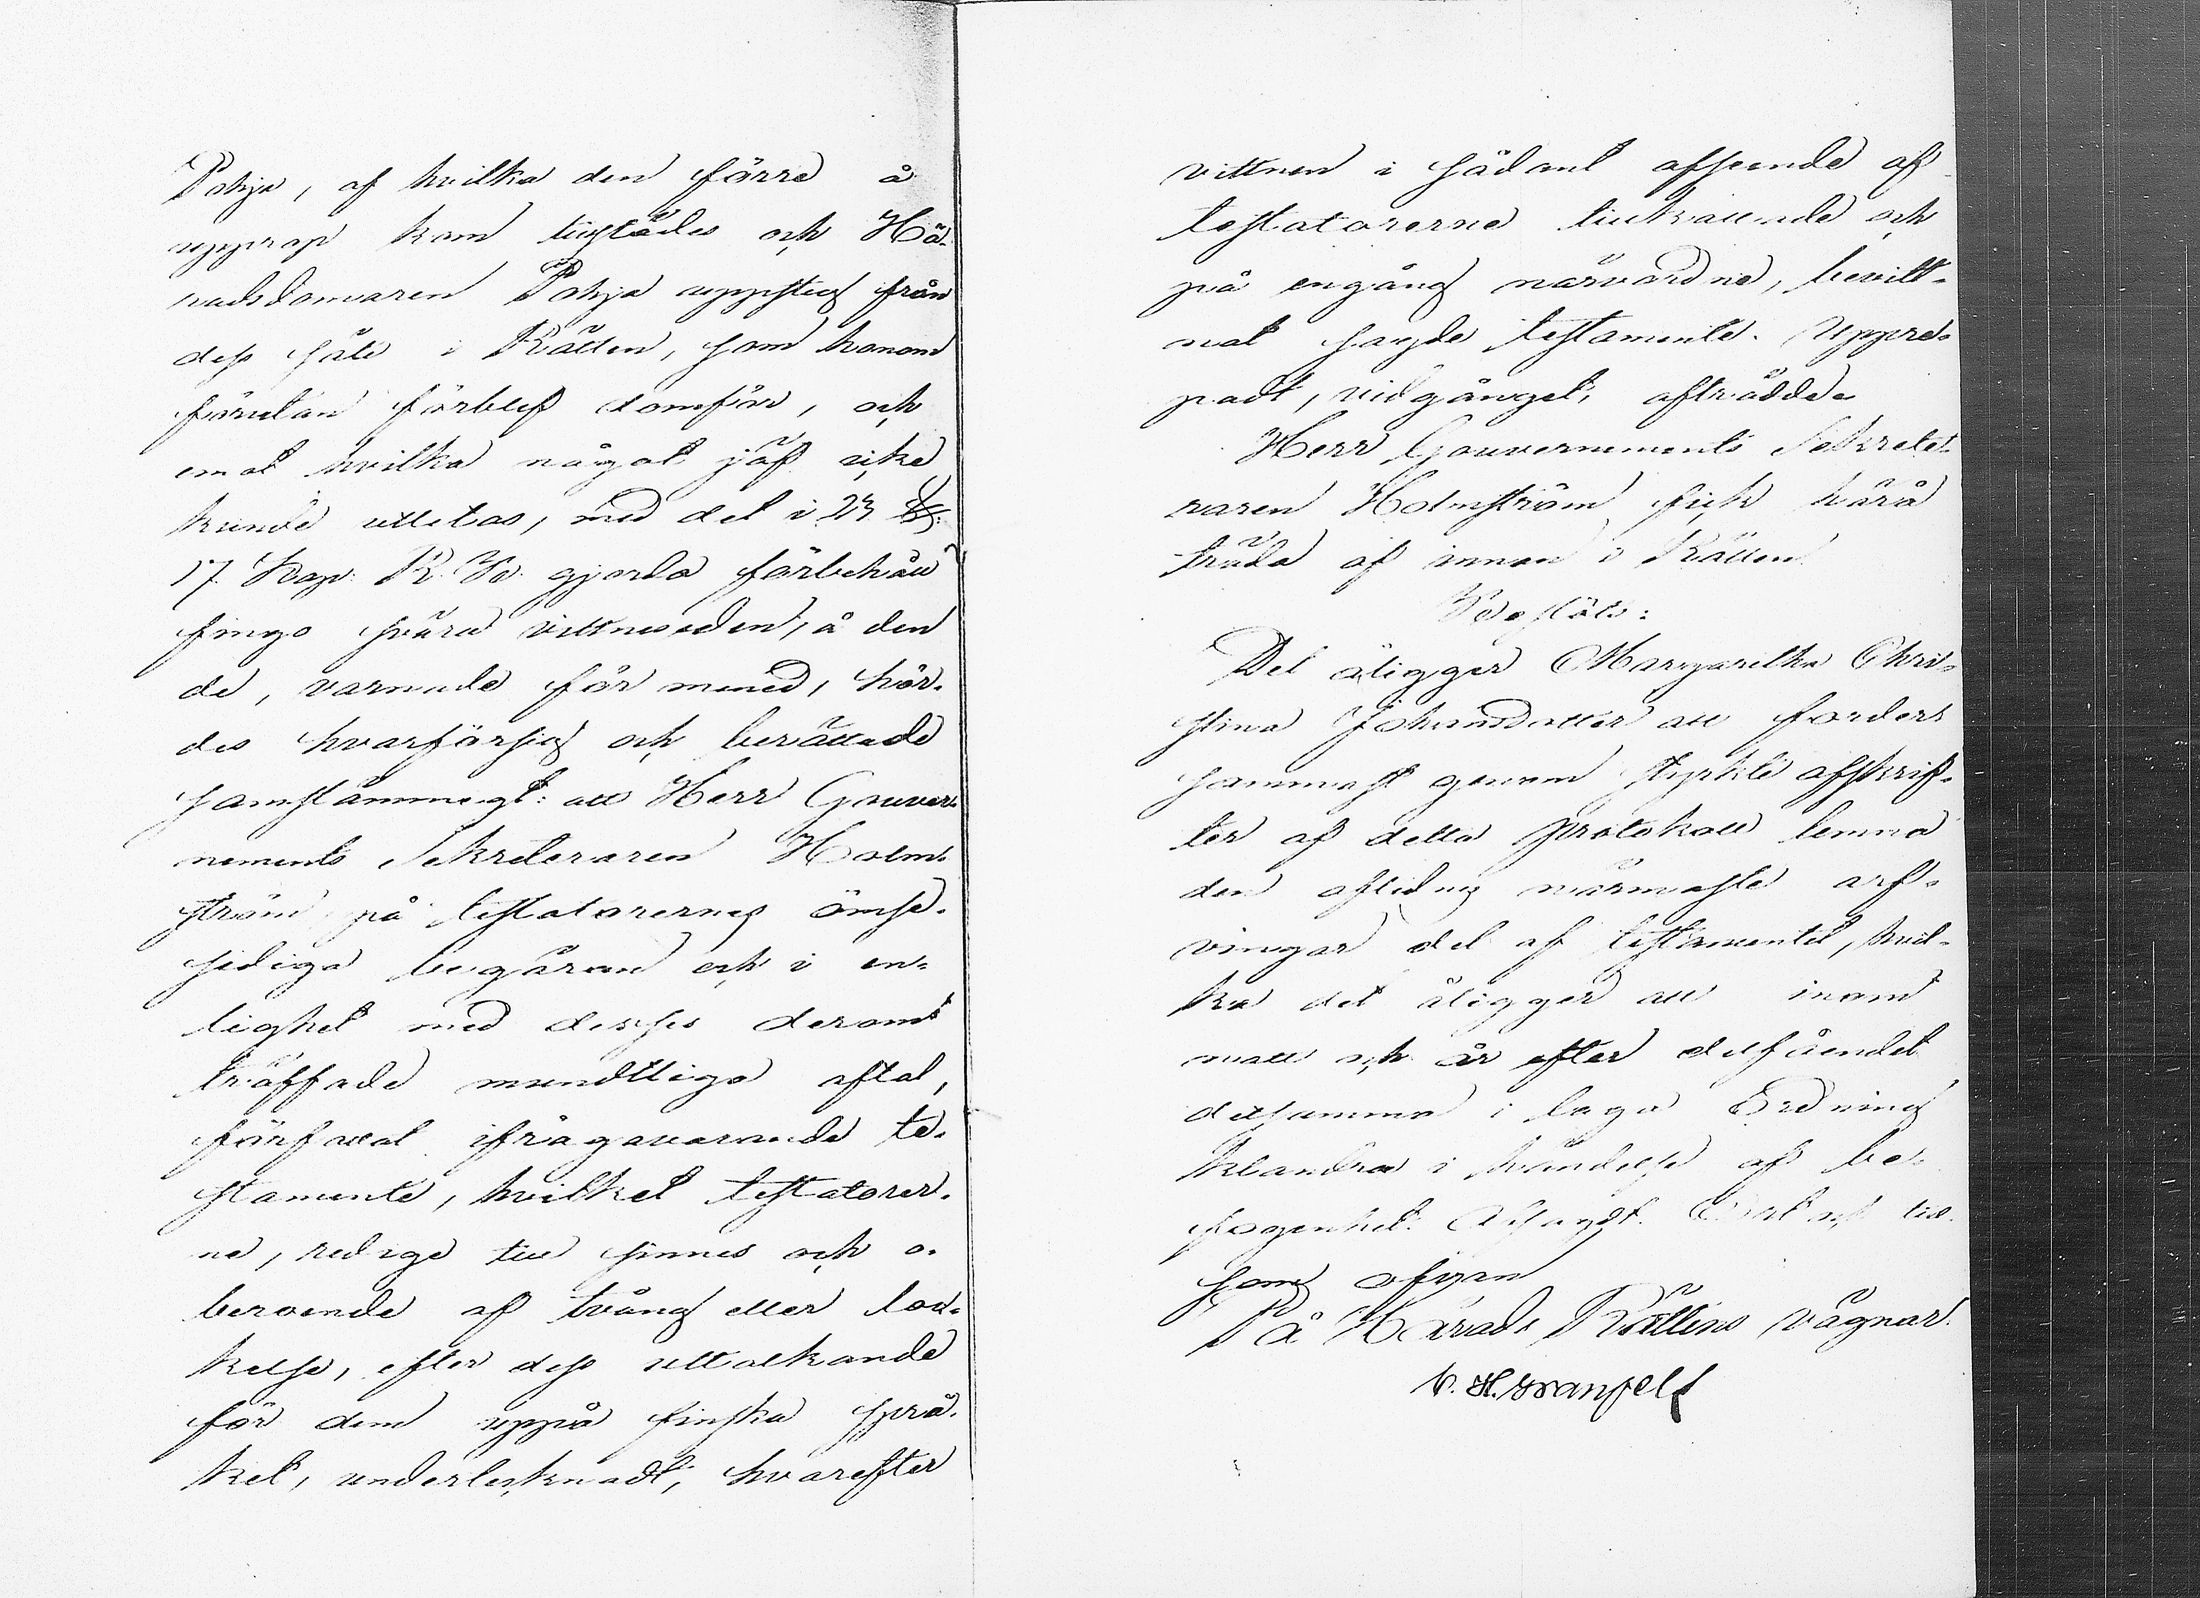 Pohja, af hvilka den förre å
upprop kom tillstädes och Hä-
radsdomaren Pohja uppsteg från
dess säte i Rätten, som honom
förutan förblef domför, och
emot hvilka något jäf icke
kunde uttetas, med det i 23 §.
17 Kap: R. B. gjorda förbehåll
fingo svära vittneseden, å den
de, varnade för mened, hör-
des hvarförsig och berättade
samstämmigt: att Herr Gouver-
nements Sekreteraren Holm-
ström på testatorernes ömse-
sidiga begäran och i en-
lighet med desses derom
träffade mundtliga aftal,
författat ifrågavarande te-
stamente, hvilket testatorer-
ne, redige till sinnes och o-
beroende af tvång eller loc-
kelse, efter dess uttolkande
för dem uppå finska språ-
ket, undertecknadt, hvarefter
vittnen i sådant afseende af
testatorerne tillkallade och
på engång närvardne, bevitt-
nat sagde testamente. Uppre-
padt, vidgånget, afträdde.
Herr Gouvernements Sekrete-
raren Holmström fick härå
träda af innan i Rätten
Beslöts:
Det åligger Margaretha Chri-
stina Johansdotter att forder-
sammast genom styrkte afskrif-
ter af detta protokoll lemna
den aflidnes närmaste arf-
vingar del af testamentet, hvil-
ka det åligger att inom
natt och år efter delfåendet
detsamma i laga Ordning
klandra i händelse af be-
fogenhet. Afsagdt. Ort och tid
som ofvan
På Härads Rättens vägnar.